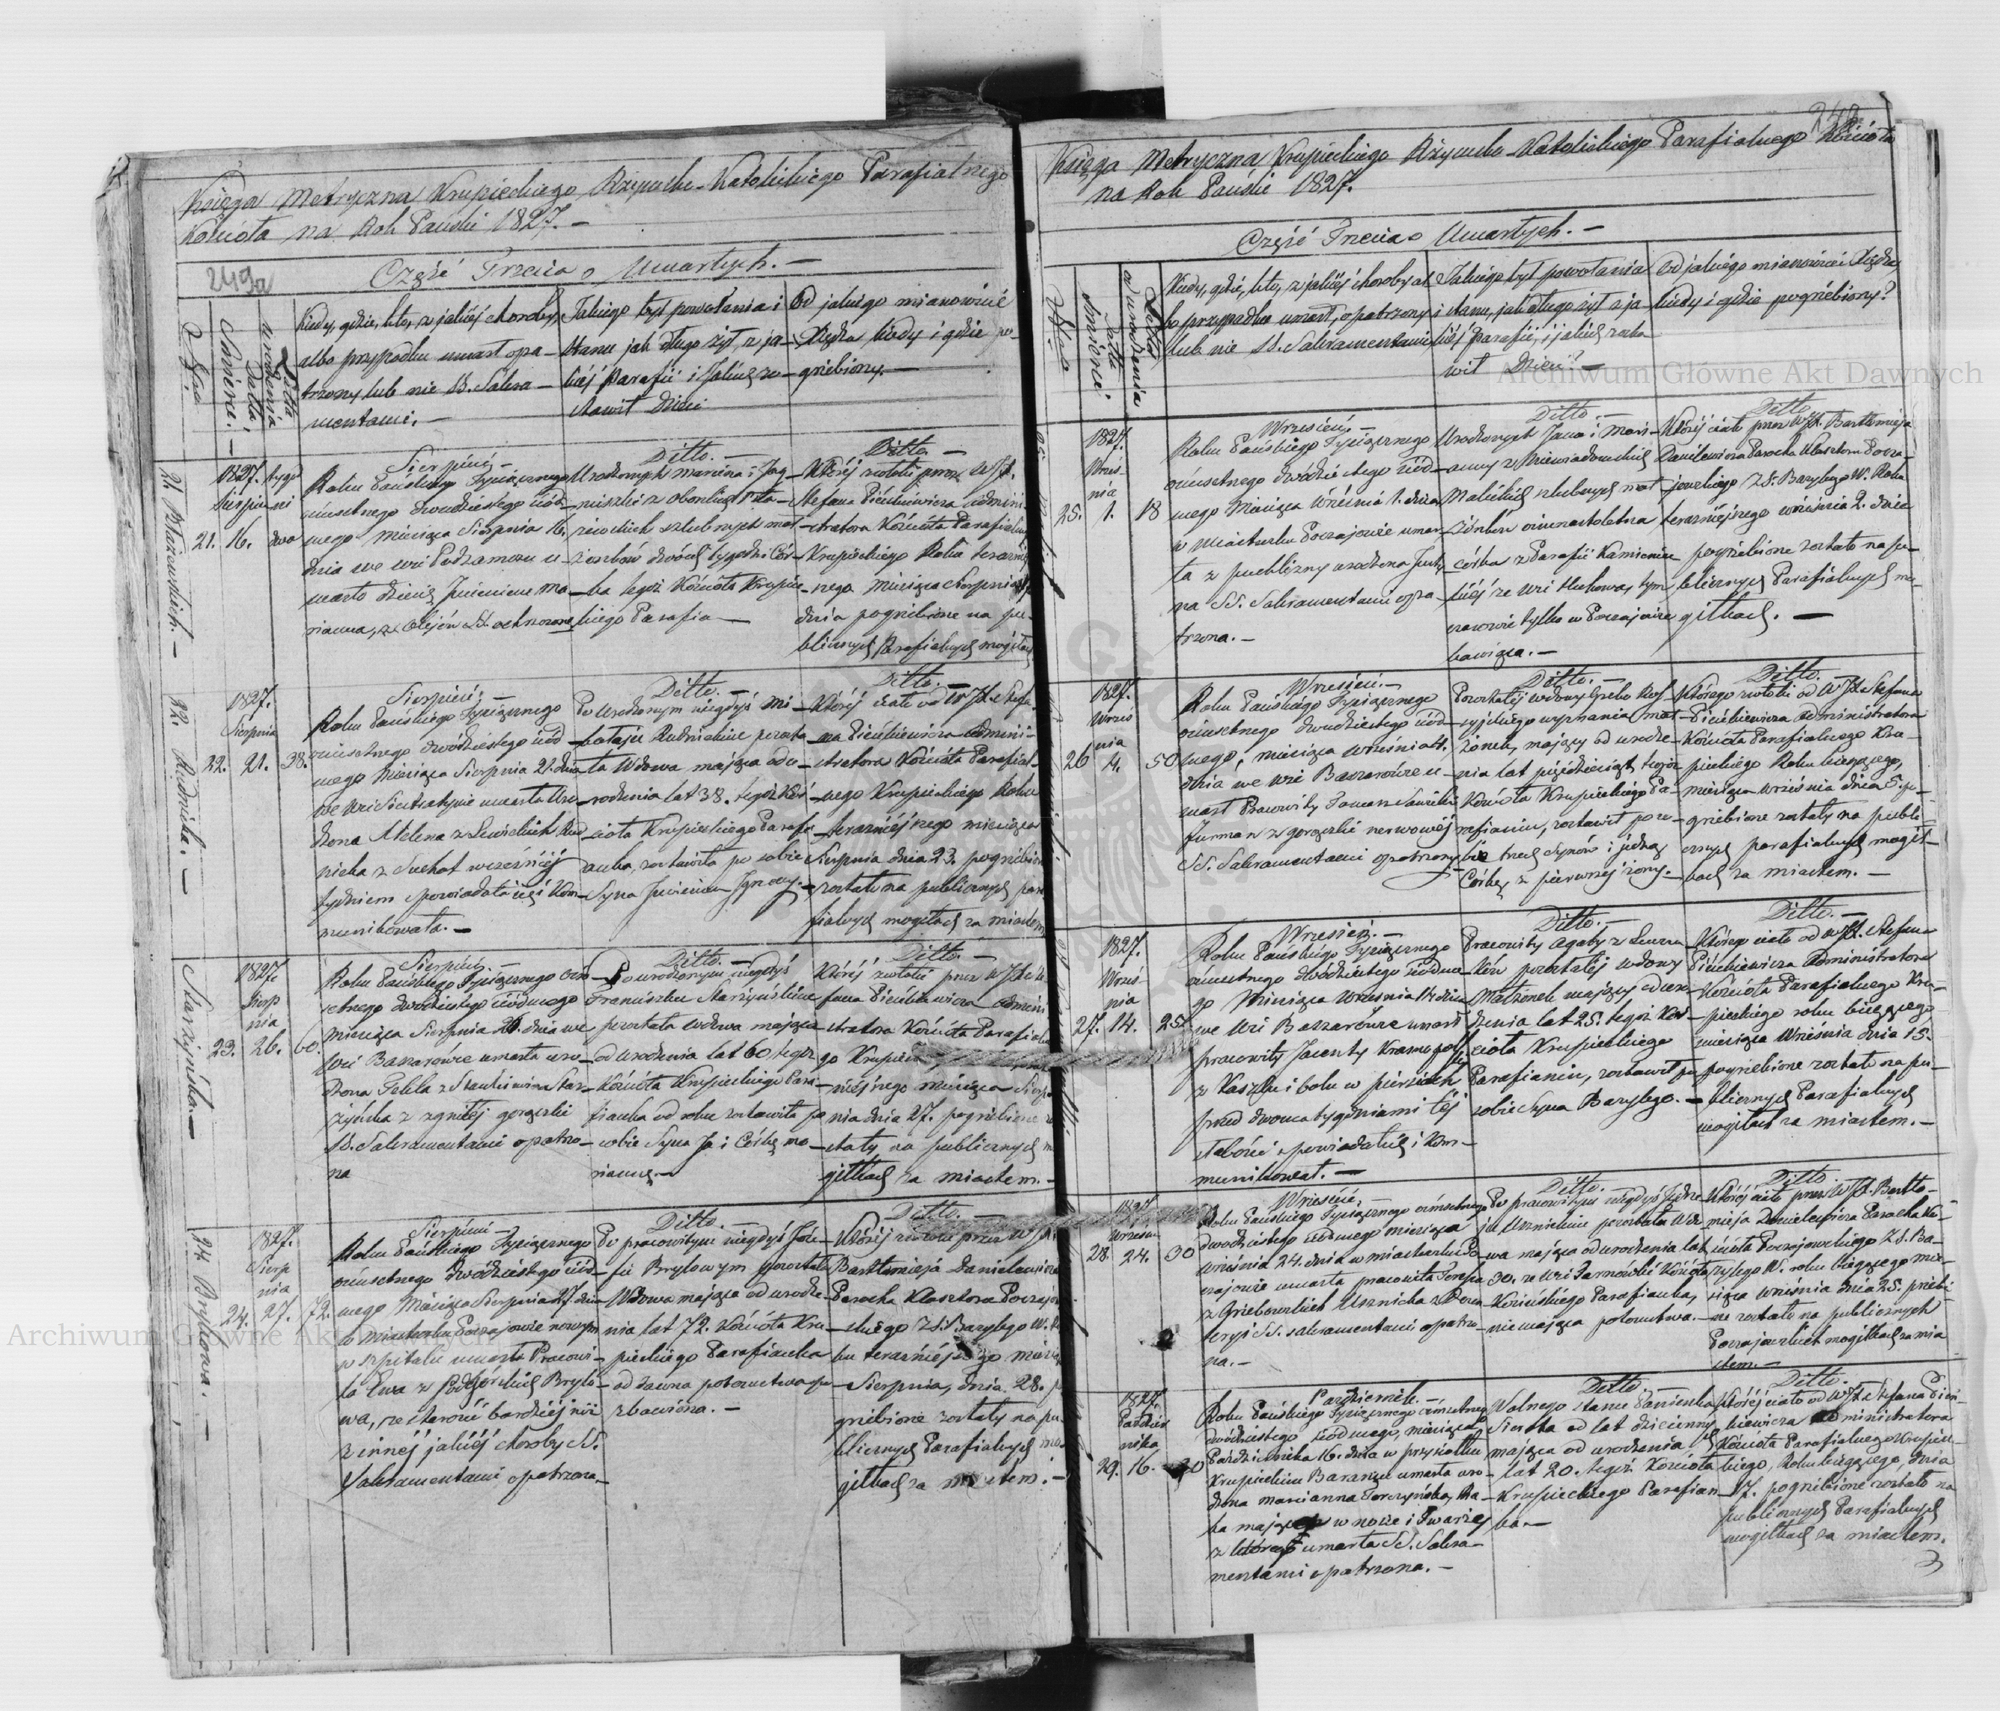 Księga Metryczna Krupieckiego Rzymsko-Katolickiego Parafialnego
Kościoła na Rok Pański 1827. –
249a
Część Trzecia o Umarłych. –
Liczba
Śmierci. –
Datta
urodzenia
Latta
Kiedy, gdzie, kto, z jakiéj choroby,
albo przypadku umarł opa-
trzony lub nie SS. Sakra-
mentami. –
Jakiego był powołania i
stanu jak długo żył z ja-
kiéj Parafii i jakich zo-
stawił dzieci
Od jakiego mianowicie
Xiędza kiedy i gdzie po-
grzebiony. –
21 Błażowskich. –
21.
1827.
Sierpnia
16.
tygo
dni
dwa
Sierpień –
Roku Pańskiego Tysiącznego
ósmsetnego dwudziestego siód-
mego miesiąca Sierpnia 16.
dnia we wsi Podzamczu u-
marło dziecie Imieniem Ma-
rianna, z Olejów SS. ochrzczone
Ditto. –
Urodzonych Marcina i Jag-
nieszki z
szlubnych mał-
żonków dwóch tygodni Cór-
ka tegoż Kościoła Krupie-
ckiego Parafia –
Ditto –
Któréj zwłoki przez WJX.
Stefana Pieńkiewicza Admini-
stratora Kościoła Parafialnego
Krupieckiego Roku teraźniéj-
nego Miesiąca Sierpnia 17.
dnia pogrzebione na pu-
blicznych Parafialnych mogiłach
22. Rudnicka. –
22.
1827.
Sierpnia
21.
38.
Sierpień. –
Roku Pańskiego Tysiącznego
ósmsetnego dwódziestego siód-
mego Miesiąca Sierpnia 21. dnia
we wsi umarła Uro-
dzona Helena z Lewickich Rud
nicka z Suchot wcześniéj
tydniem spowiadała się i Kom-
munikowała. –
Ditto. –
Po Urodzonym niegdyś Mi-
kołaju Rudnickim pozosta
ła Wdowa mająca od u-
rodzenia lat 38. tegoż Koś-
cioła Krupieckiego Parafi-
anka, zostawiła po sobie
Syna Imieniem Ignacy. –
Ditto. –
Któréj ciało od WJX. Stefa-
na Pieńkiewicza Admini-
stratora Kościoła Parafial-
nego Krupieckiego Roku
teraźniéjszego miesiąca
Sierpnia dnia 23. pogrzebione
zostało na publicznych para
fialnych mogiłach za miastem
Starzyńska. –
23.
1827.
Sierp
nia
26.
60.
Sierpień. –
Roku Pańskiego Tysiącznego óśm-
setnego dwódziestego siódmego
miesiąca Sierpnia 26. dnia we
Wsi Baszarówce umarła uro-
dzona Tekla z Stankiewicza Star-
zyńska z zgniłéj gorączki
SS. Sakramentami opatrzo-
na
Ditto. –
Po urodzonym niegdyś
Franciszku Starzyńskim
pozostała wdowa mająca
od urodzenia lat 60 tegoż
Kościoła Krupieckiego Para-
fianka od roku zostawiła po
sobie Syna Ja i Córkę Ma-
riannę. –
Ditto. –
Któréj zwłoki przez WJX. Ste-
fana Pieńkiewicza Admini-
stratora Kościoła Parafialne
go Krupieckiego, Roku teraz-
niéjszego miesiąca Sierp-
nia dnia 27. pogrzebione zo
stały na publicznych mo
giłkach za miastem. –
24 Brylowa. –
24.
1827.
Sierp
nia
27.
72.
Sierpień –
Roku Pańskiego Tysiącznego
ósmsetnego dwódziestego siód-
mego Miesiąca Sierpnia 27. dnia
w Miasteczku Poczajowie nowym
w szpitalu umarła Pracowi-
ta Ewa z Podgórskich Brylo-
wa, ze starości bardziéj niż
z innéj jakiéj choroby SS.
Sakramentami opatrzona –
Ditto. –
Po pracowitym niegdyś Józe-
fie Brylowym pozostała
Wdowa mająca od urodze-
nia lat 72. Kościoła Kru-
pieckiego Parafianka
od dawna potomstwa po-
zbawiona. –
Ditto. –
Któréj zwłoki przez WJX.
Bartłomieja Danielewicza
Parocha Klasztoru Poczajow-
skiego ZS. Bazylego W. Ro-
ku teraźniéjszego miesiąca
Sierpnia, dnia 28. po
grzebione zostały na pu-
blicznych Parafialnych mo-
giłkach za miastem. –
Księga Metryczna Krupieckiego Rzymsko-Katolickiego Parafialnego Kościoła
na Rok Pański 1827.
Część Trzecia o Umarłych. –
Liczba
Śmierci
Datta
od urodzenia
Latta
Kiedy, gdzie, kto, z jakiéj choroby al-
bo przypadku umarł, opatrzony
lub nie SS. Sakramentami
Jakiego był powołania
i stanu, jak długo żył z ja-
kiéj Parafii, i jakich zosta-
wił Dzieci? –
Od jakiego mianowicie Xiędza,
kiedy i gdzie pogrzebiony?
Archiwum Główne Akt Dawnych
25.
1827.
Wrześ
nia
1.
18
Wrzesień. –
Roku Pańskiego Tysiącznego
ósmsetnego dwódziestego siód-
mego Miesiąca Września 1. dnia
w Miasteczku Poczajowie umar-
ła z puchlizny urodzona Justy
na SS. Sakramentami opa-
trzona. –
Ditto. –
Urodzonych Jana i Mari-
anny z Niewiadomskich
Malickich szlubnych mał-
żonków ośmnastoletnia
córka z Parafii Kamienie-
ckiéj ze wsi tym
czasowie tylko w Poczajowie
bawiąca. –
Ditto. –
Któréj ciało przez WJX. Bartłomieja
Danilewicza Parocha Klasztoru Pocza-
jowskiego ZS. Bazylego W. Roku
teraźniéjszego Września 2. dnia
pogrzebione zostało na pu-
blicznych Parafialnych mo-
giłkach. –
26
1827.
Wrześ
nia
4.
50
Wrzesień. –
Roku Pańskiego Tysiącznego
ósmsetnego dwudziestego siód-
mego, miesiąca Września 4.
dnia we wsi Baszarówce u-
marł Pracowity Tomasz Sawicki
furman z gorączki nerwowéj
SS. Sakramentami opatrzony
Ditto. –
Pozostałéj wdowy Greko Ros-
syjskiego wyznania mał-
żonek, mający od urodze-
nia lat pięćdziesiąt, tegoż
Kościoła Krupieckiego Pa-
rafianin, zostawił po so-
bie trzech Synów i jedną
Córkę z pierwszéj żony. –
Ditto. –
Którego zwłoki od WJX. Stefana
Pieńkiewicza Administratora
Kościoła Parafialnego Kru-
pieckiego Roku bieżącego,
miesiąca września dnia 5. po-
grzebione zostały na publi-
cznych parafialnych mogił-
kach za miastem. –
27.
1827.
Wrześ-
nia
14.
25.
Wrzesień. –
Roku Pańskiego Tysiącznego
ósmsetnego dwódziestego siódme-
go Miesiąca Września 14 dnia
we Wsi Baszarówce umarł
pracowity Jacenty
z Kaszlu i bolu w piersiach
przed dwoma tygodniami téj
słabości spowiadał się i Kom-
munikował. –
Ditto. –
Pracowity Agaty z
pozostałéj wdowy
Małżonek mający od uro-
dzenia lat 25. tegoż Koś-
cioła Krupieckiego
Parafianin, zostawił po
sobie Syna Bazylego. –
Ditto. –
Którego ciało od WJX. Stefana
Pieńkiewicza Administratora
Kościoła Parafialnego Kru-
pieckiego roku bieżącego,
miesiąca Września dnia 15.
pogrzebione zostało na pu-
blicznych Parafialnych
mogiłkach za miastem. –
28.
1827.
Wrześn.
24.
30
Wrzesień. –
Roku Pańskiego Tysiącznego ósmsetnego
dwudziestego siódmego miesiąca
września 24. dnia w miasteczku Po-
czajowie umarła pracowita Teresa
z Grzebowskich z Dysen-
teryi SS. sakramentami opatrzo-
na. –
Ditto. –
Po pracowitym niegdyś Jędrze-
ju pozostała Wdo-
wa mająca od urodzenia lat
30. ze wsi Tarnówki Kościoła
Parafianka,
nie mająca potomstwa. –
Ditto
Któréj ciało przez WJX. Bartło-
mieja Danielewicza Parocha Ko-
ścioła Poczajowskiego ZS. Ba-
zylego W. roku bieżącego mie-
siąca września dnia 25. pogrzebio-
ne zostało na publicznych
Poczajowskich mogiłkach za mia
stem. –
29.
1827.
Paździer
nika
16.
20
Październik. –
Roku Pańskiego Tysiącznego ósmsetnego
dwódziestego siódmego, miesiąca
Października 16. dnia w przysiołku
Krupieckim Baranie umarła uro-
dzona Marianna Torczyńska, Ra-
ka mająca w nosie i Twarzy
z którego umarła SS. Sakra-
mentami opatrzona. –
Ditto –
Wolnego stanu Panienka
Sierota od lat dziecinnych
mająca od urodzenia
lat 20. tegoż Kościoła
Krupieckiego Parafian-
ka –
Ditto. –
Któréj ciało od WJX. Stefana Pień-
kiewicza Administratora
Kościoła Parafialnego Krupiec-
kiego, Roku bieżącego, dnia
17. pogrzebione zostało na
publicznych Parafialnych
mogiłkach za miastem.